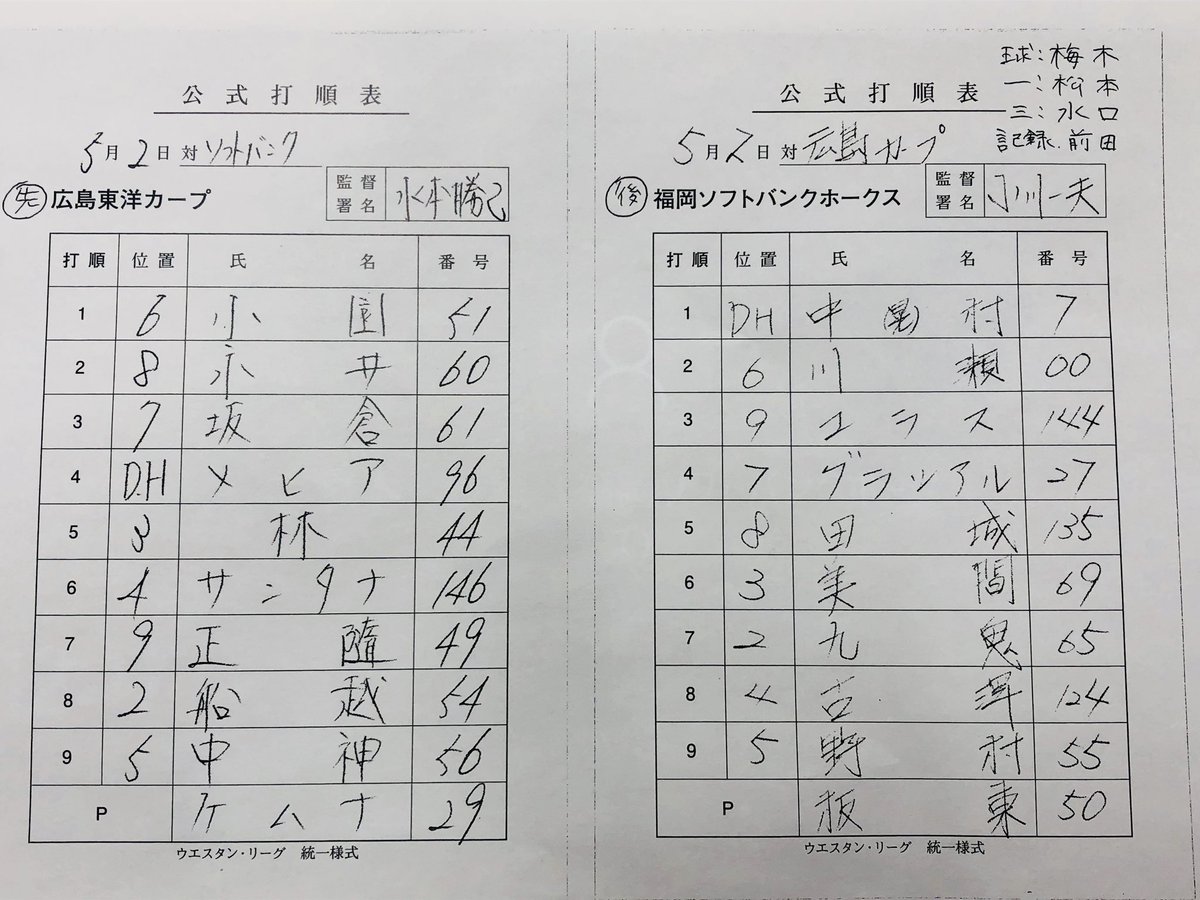 公式打順表
5月2日対ソフトバンク
先 広島東洋カープ 監督署名 水本勝己
打順 位置 氏名 番号
1 6 小園 51
2 8 永井 60
3 7 坂倉 61
4 D.H メヒア 96
5 3 林 44
6 4 サンタナ 146
7 9 正隨 49
8 2 船越 54
9 5 中神 56
P ケムナ 29
ウエスタン・リーグ 統一様式
球:梅木
一:松本
三:水口
記録.前田
公式打順表
5月2日対広島カープ
後 福岡ソフトバンクホークス 監督署名 小川一夫
打順 位置 氏名 番号
1 DH 中(晃)村 7
2 6 川瀬 00
3 9 コラス 144
4 7 グラシアル 27
5 8 田城 135
6 3 美間 69
7 2 九鬼 65
8 4 古澤 124
9 5 野村 55
P 板東 50
ウエスタン・リーグ 統一様式